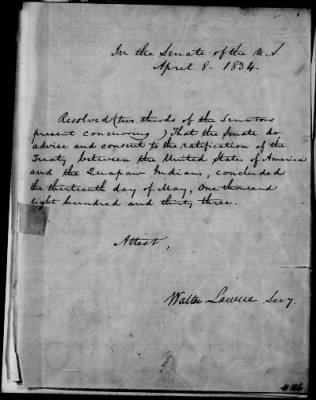 In the Senate of the U.S
April 8. 1834.
Resolved (two thirds of the Senators
present concurring) That the Senate do
advise and consent to the ratification of the
Treaty between the United States of America
and the Quapaw Indians, concluded
the thirteenth day of May, One thousand
eight hundred and thirty three.
Attest,
Walter Lowrie Secy.